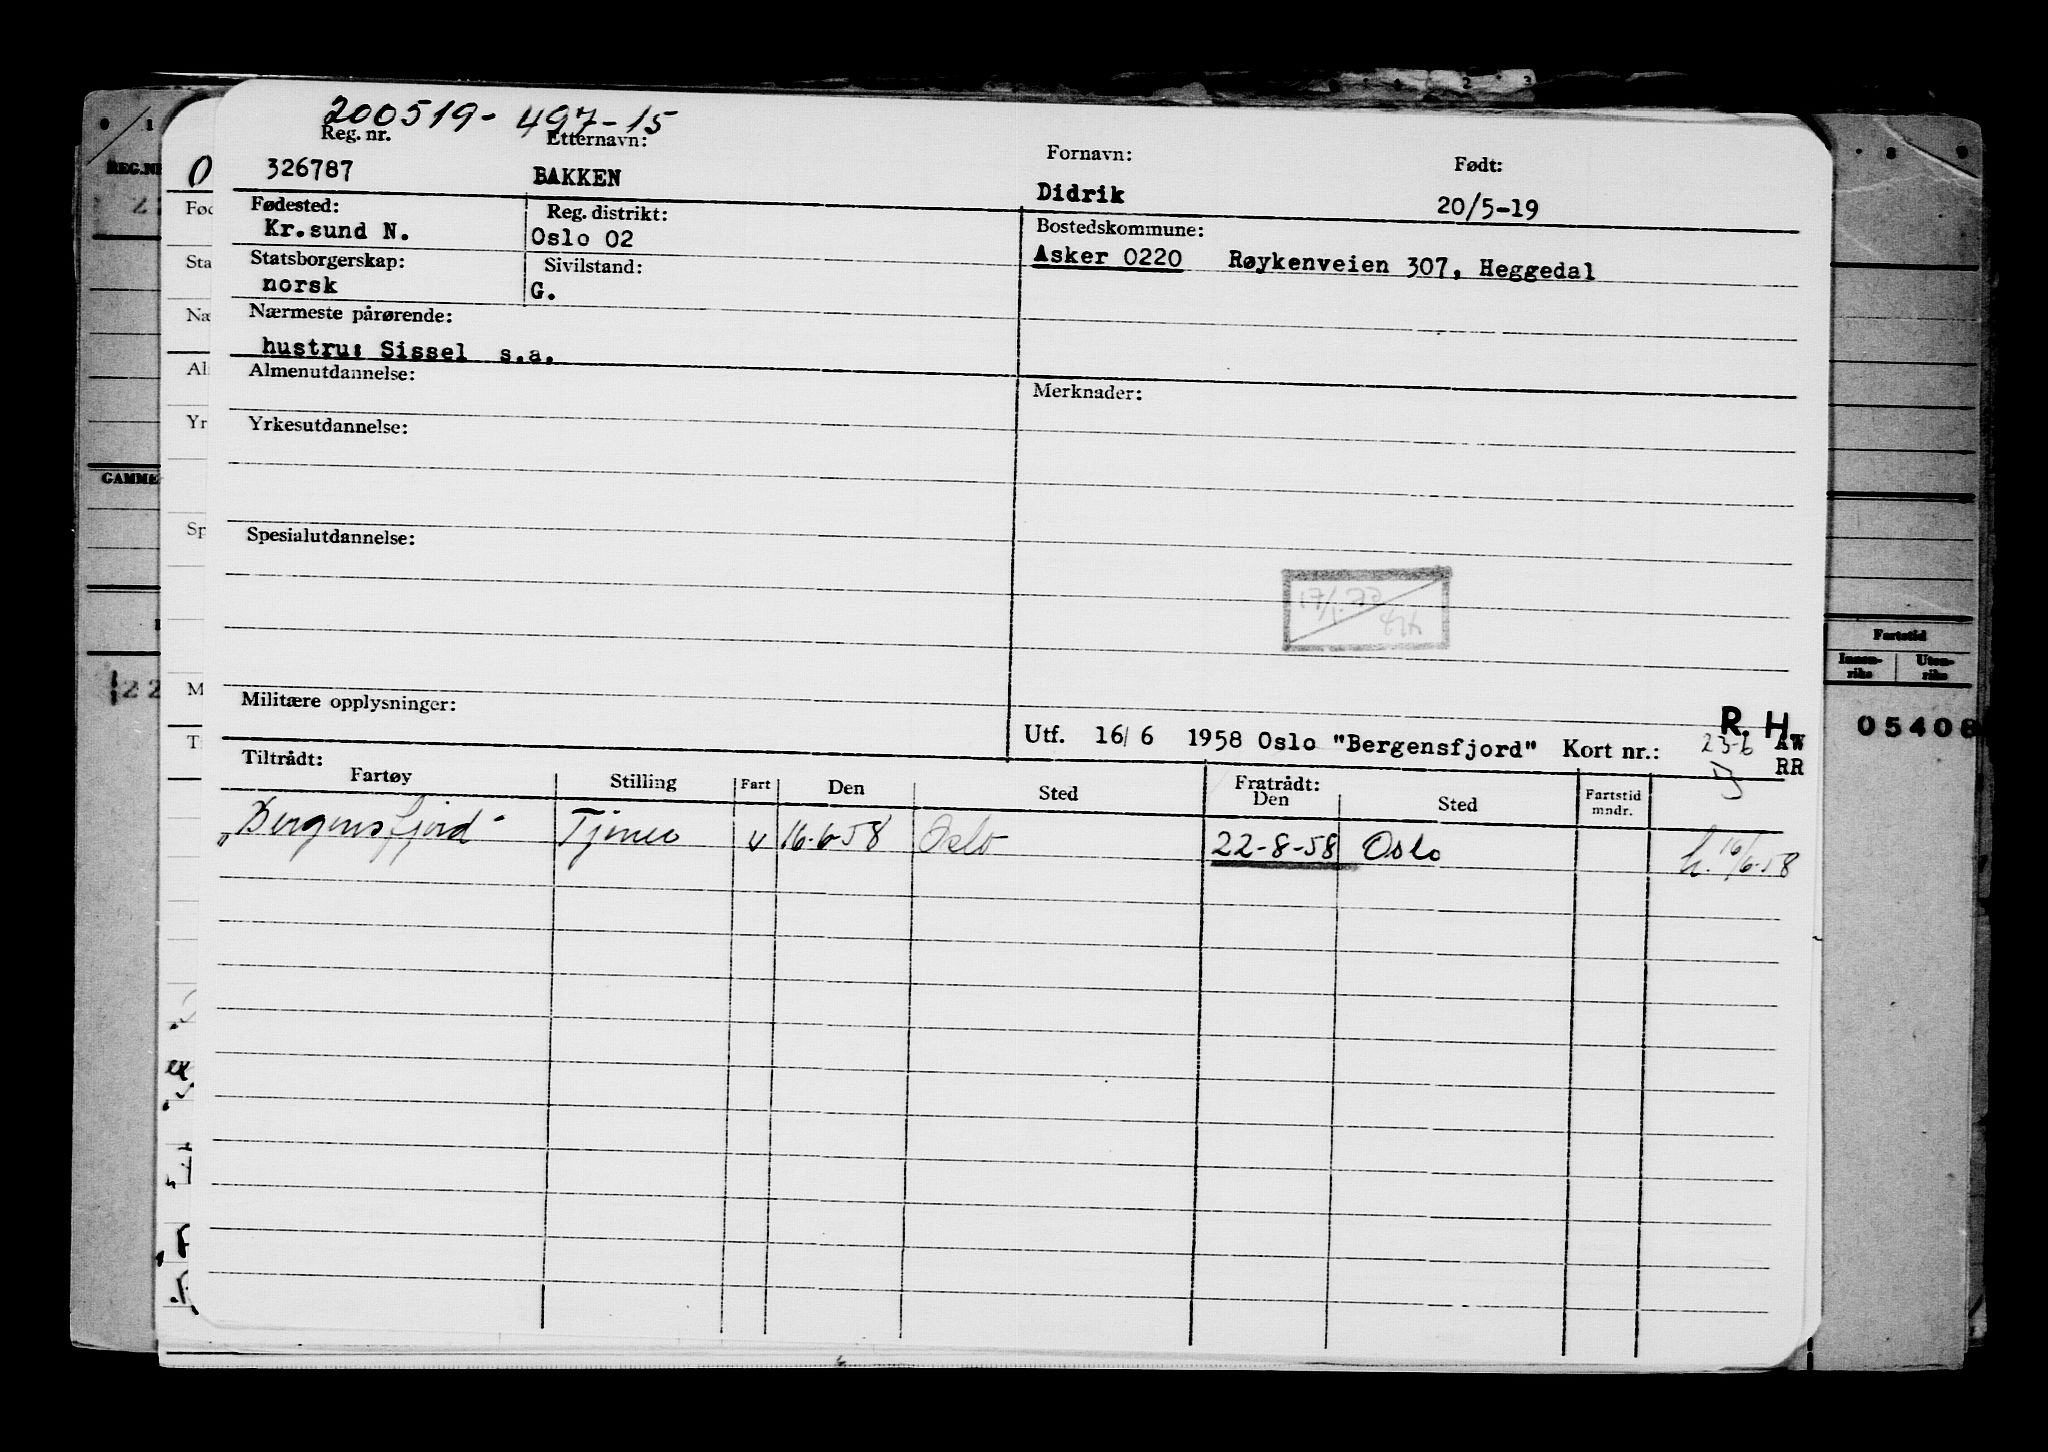 200519- 497-15
Reg. nr. Etternavn: Fornavn: Født:
326787 BAKKEN Didrik 20/5-19
Fødested: Reg. distrikt: Bostedskommune:
Kr.sund N. Oslo 02 Asker 0220 Røykenveien 307, Heggedal
Statsborgerskap: Sivilstand:
norsk G.
Nærmeste pårørende:
hustru: Sissel s.a.
Almenutdannelse: Merknader:
Yrkesutdannelse:
Spesialutdannelse:
Militære opplysninger:
R. H.
Utf. 16/6 1958 Oslo "Bergensfjord" Kort nr.: 23-6 AW
RR
Tiltrådt: Fratrådt:
Fartøy Stilling Fart Den Sted Den Sted Fartstid mndr.
"Bergensfjord" v 16-6-58 Oslo 22-8-58 Oslo h. 16/6-58
REG.NR
GAMME
Fartstid
Innen-
riks
Uten-
riks
05408